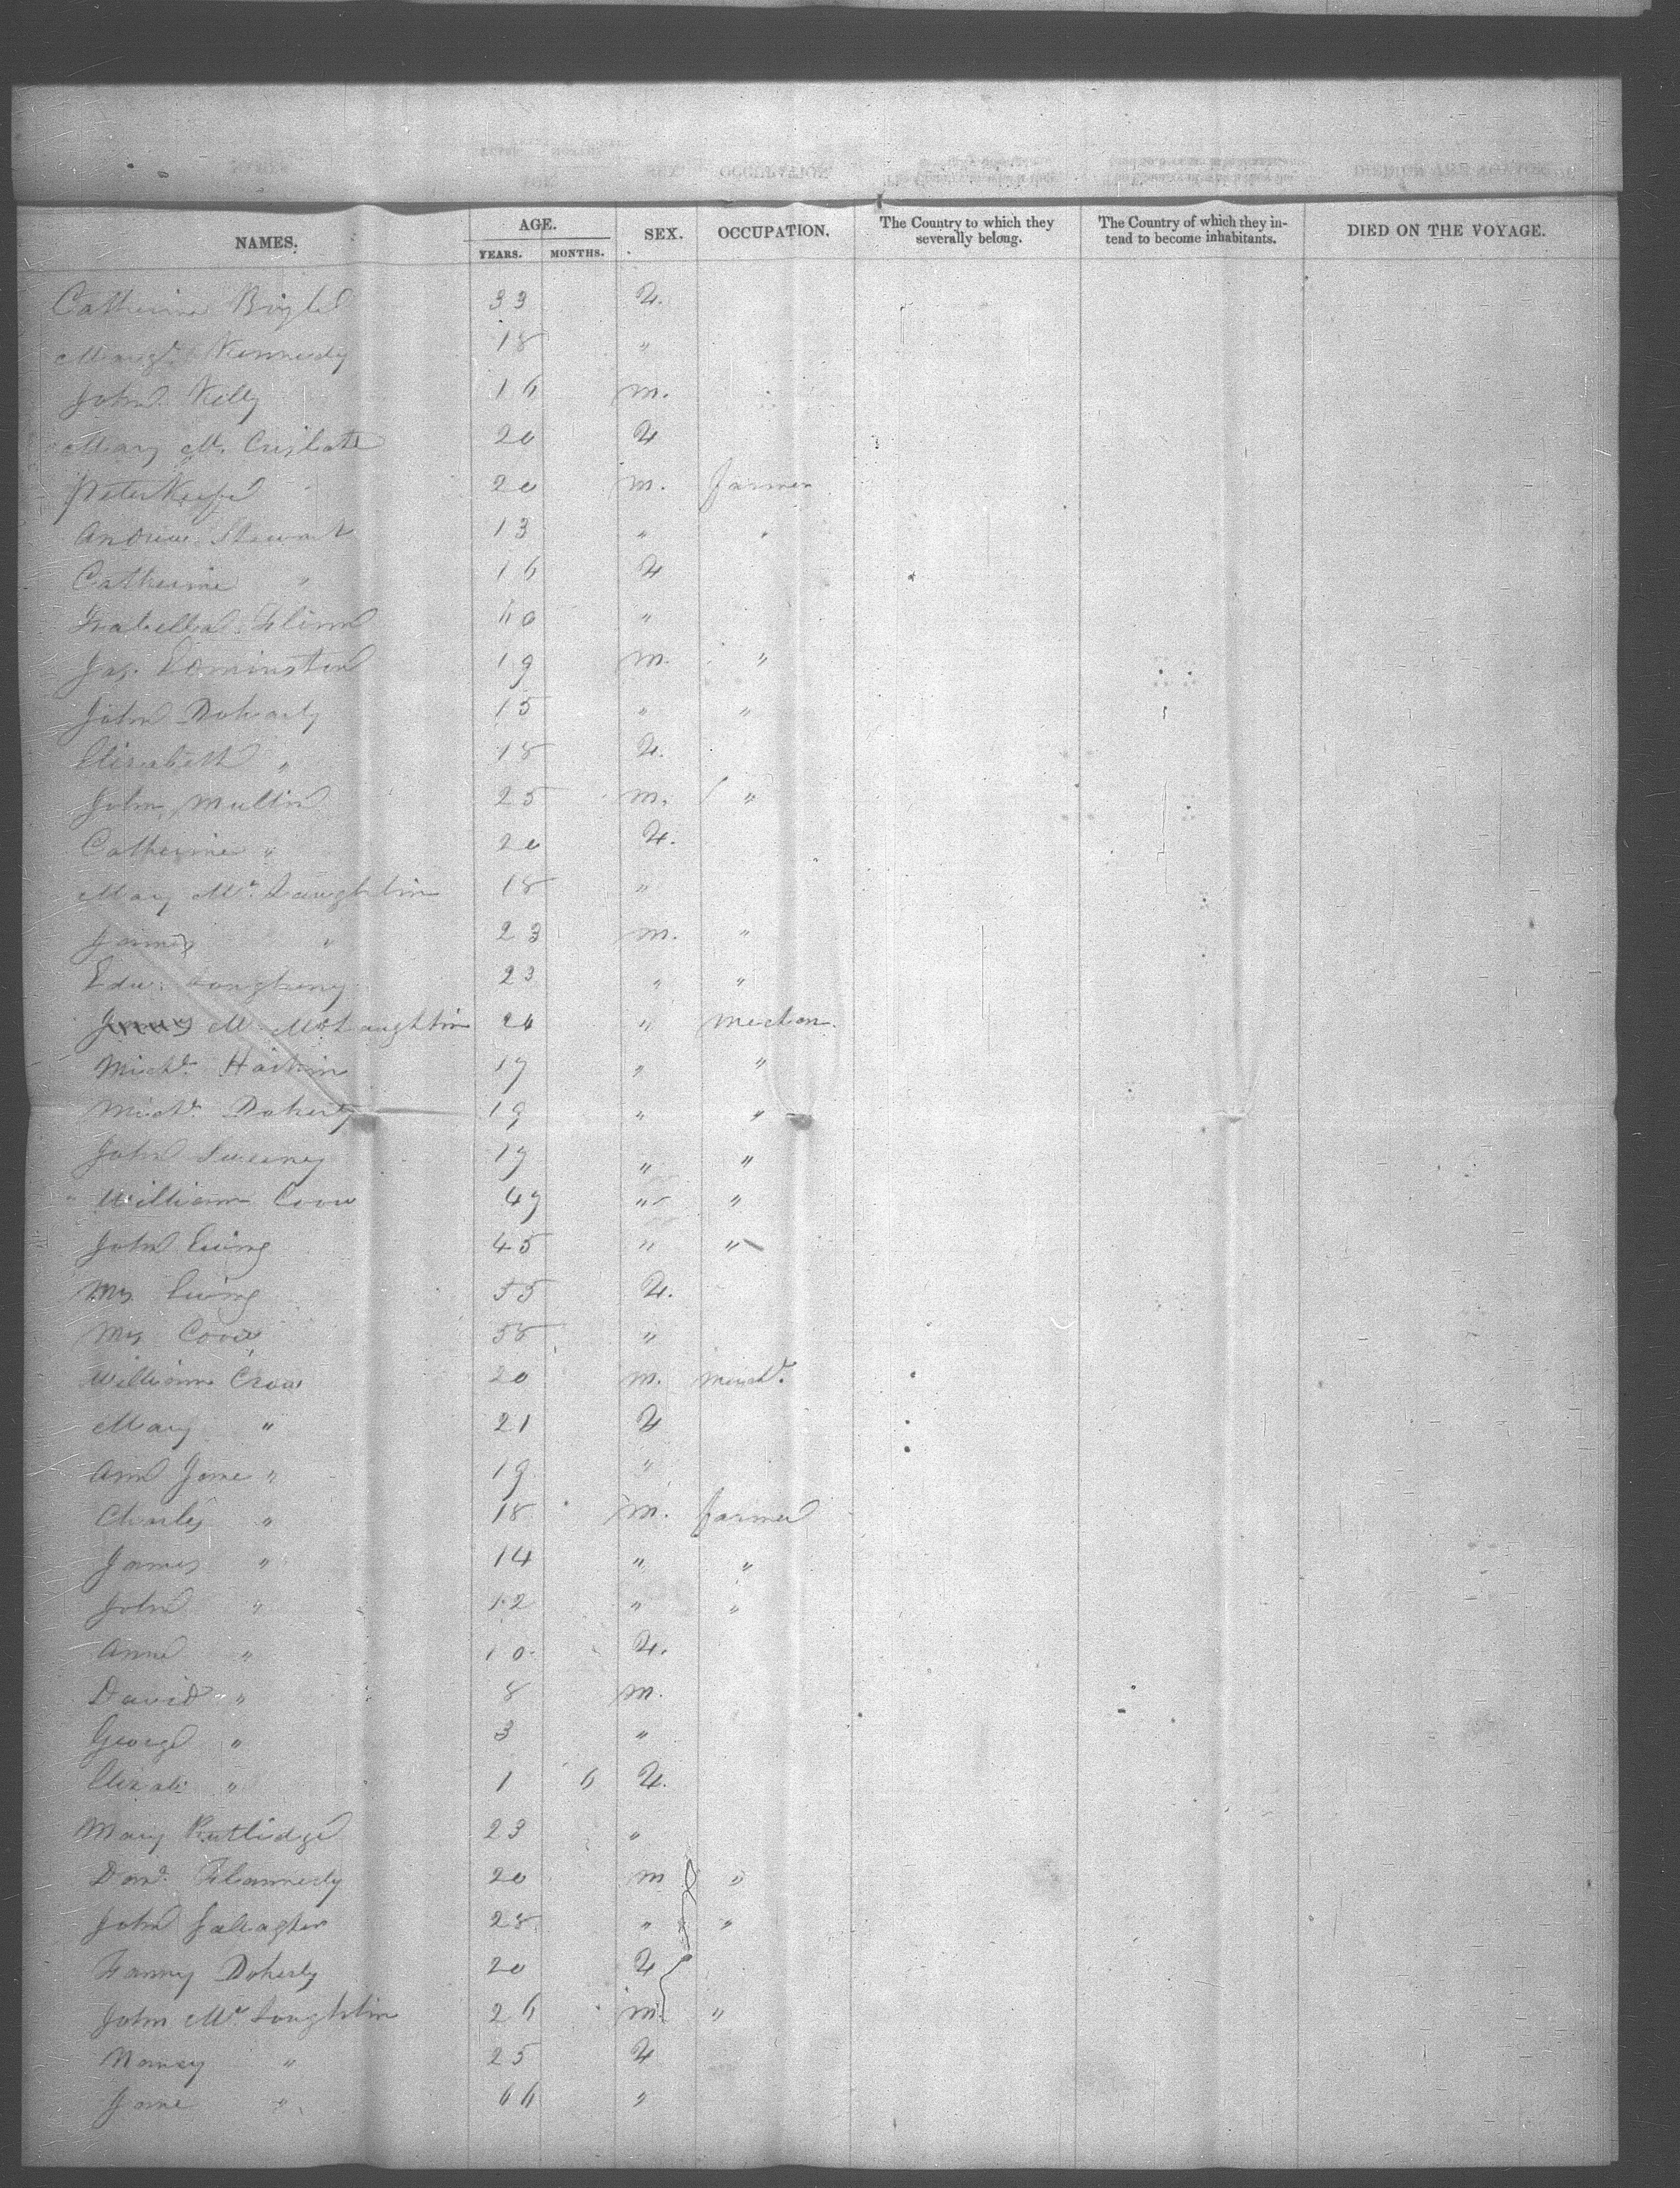 NAMES. AGE. YEARS. MONTHS. SEX. OCCUPATION. The Country to which they severally belong. The Country of which they intend to become inhabitants. DIED ON THE VOYAGE.
Catherine 33 F.
Margt. Kennedy 18 "
John Kelly 16 m.
Mary Mc 20 F
Peter Keefe 20 m. farmer
Andrew Stewart 13 " "
Catherine " 16 F
Isabella Flinn 60 "
Jas. Edminston 19 m. "
John Doherty 15 " "
Elizabeth " 18 F.
John Mullin 25 m. "
Catherine " 20 F.
Mary Mc Laughlin 18 "
James " 23 m. "
Edw. 23 " "
M. McLaughlin 24 " mechan.
Michl. Harkin 17 " "
Michl. Doherty 19 " "
John Sweeney 17 " "
William 47 " "
John Ewing 45 " "
Mrs Ewing 55 F.
Mrs 58 "
William Crow 20 m.
Mary " 21 F
Ann Jane " 19 "
Charles " 18 m. farmer
James " 14 " "
John " 12 " "
Anne " 10 F.
David " 8 m.
George " 3 "
Elizab " 1 6 F.
Mary Rutlidge 23 "
Danl. 20 m "
John Galagher 28 " "
Fanny Doherty 20 F
John Mc Loughlin 26 m. "
Nancy " 25 F
Jane " 66 "